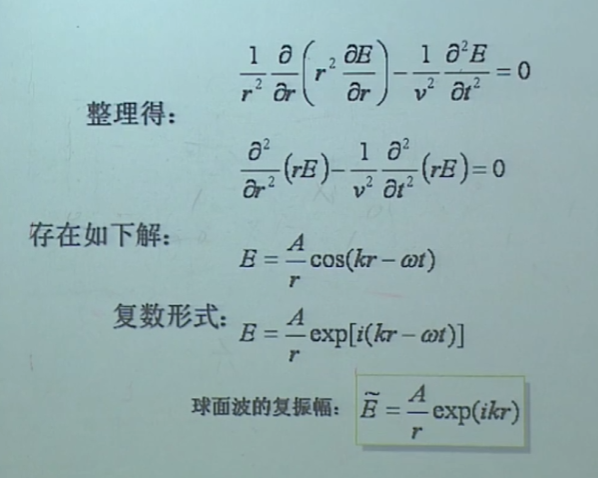 \frac{1}{r^2}\frac{\partial}{\partial r}\left(r^2\frac{\partial E}{\partial r}\right)-\frac{1}{v^2}\frac{\partial^2 E}{\partial t^2}=0
整理得：
\frac{\partial^2}{\partial r^2}(rE)-\frac{1}{v^2}\frac{\partial^2}{\partial t^2}(rE)=0
存在如下解：
E=\frac{A}{r}\cos(kr-\omega t)
复数形式： E=\frac{A}{r}\exp[i(kr-\omega t)]
球面波的复振幅： \tilde{E}=\frac{A}{r}\exp(ikr)